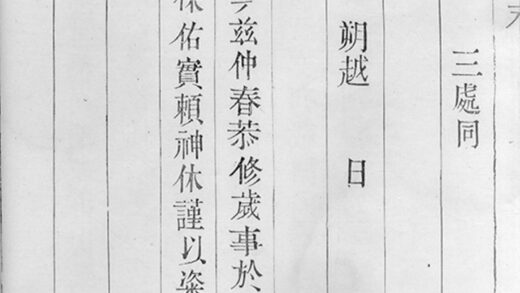 三處同
朔越 日
茲仲春恭修歲事於
佑實賴神休謹以粢